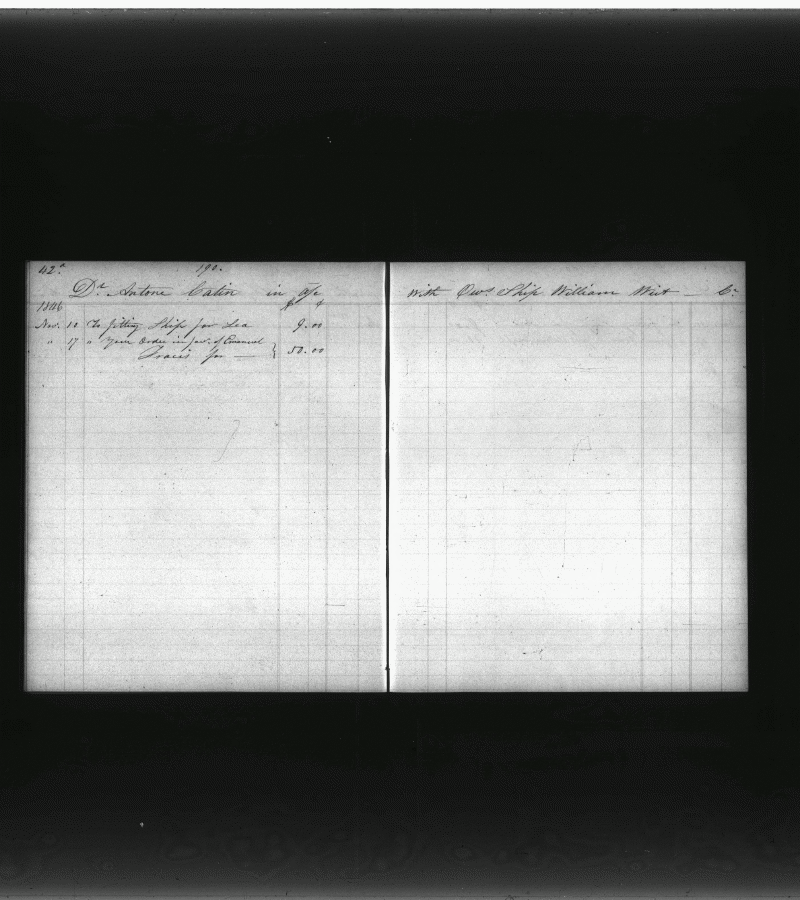 42ᵃ. 190.
Dr. Antone Catin in a/c With Ows. Ship William Wirt — Cr.
$ ¢
1846
Nov. 10 To fitting Ship for Sea 9.00
" 17 " Your Order in fav. of Emanuel
for — } 50.00